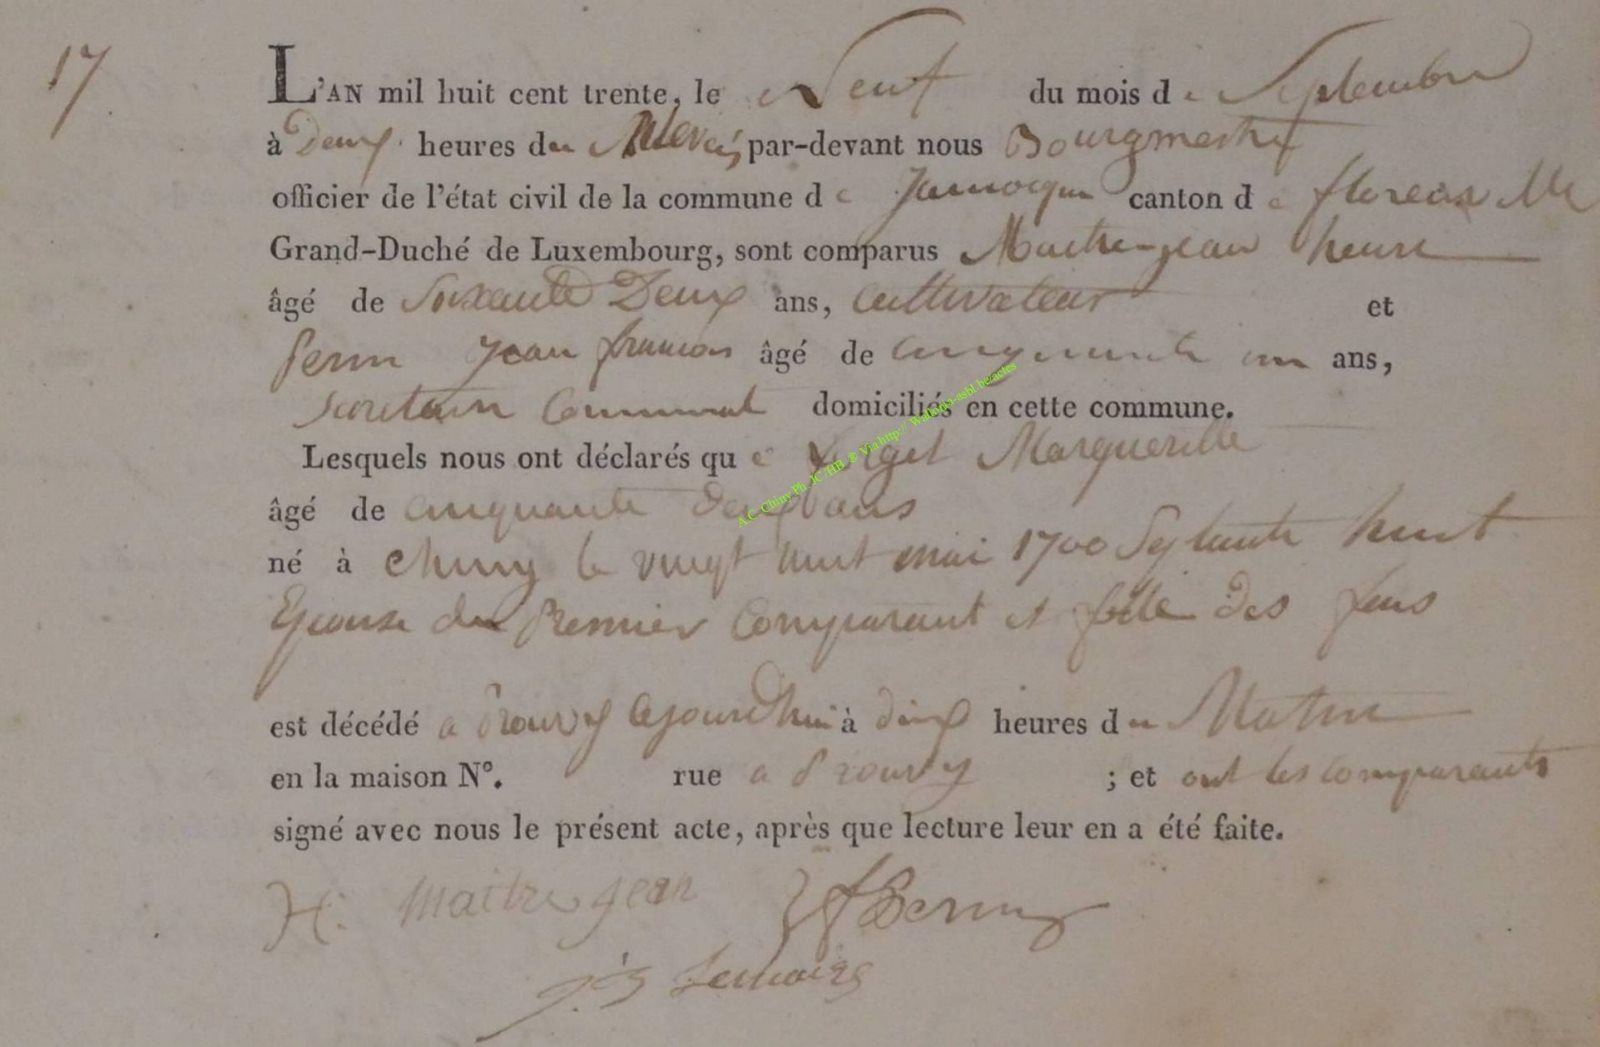 17
L'AN mil huit cent trente, le Neuf du mois de Septembre
à Deux heures du par-devant nous Bourgmestre
officier de l'état civil de la commune de Jamoigne canton de florenville
Grand-Duché de Luxembourg, sont comparus Maitrejean henri
âgé de Soixante Deux ans, Cultivateur et
Perin Jean francois âgé de Cinquante un ans,
Secretaire Communal domiciliés en cette commune.
Lesquels nous ont déclarés que Forget Margueritte
âgé de cinquante deux ans
né à Chiny le vingt huit mai 1700 Septante huit
Epouse du Premier Comparant et fille des feus
est décédé a Prouvy cejourdhui à dix heures du Matin
en la maison N°. rue a Prouvy ; et ont les comparants
signé avec nous le présent acte, après que lecture leur en a été faite.
H. maitrejean JfPerin
J.B Lemaire
A.C. Chiny Ph JC/HB & Via http:// Wallonia-asbl.be/actes